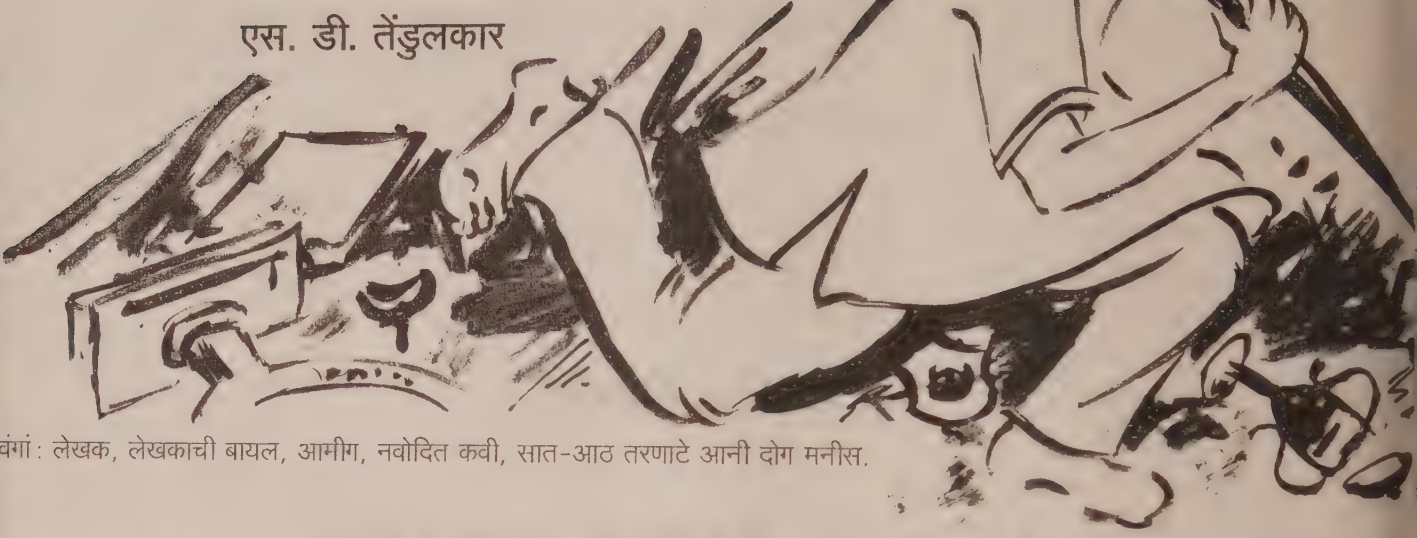 एस. डी. तेंडुलकार
वंगां : लेखक, लेखकाची बायल, आमीग, नवोदित कवी, सात-आठ तरणाटे आनी दोग मनीस.